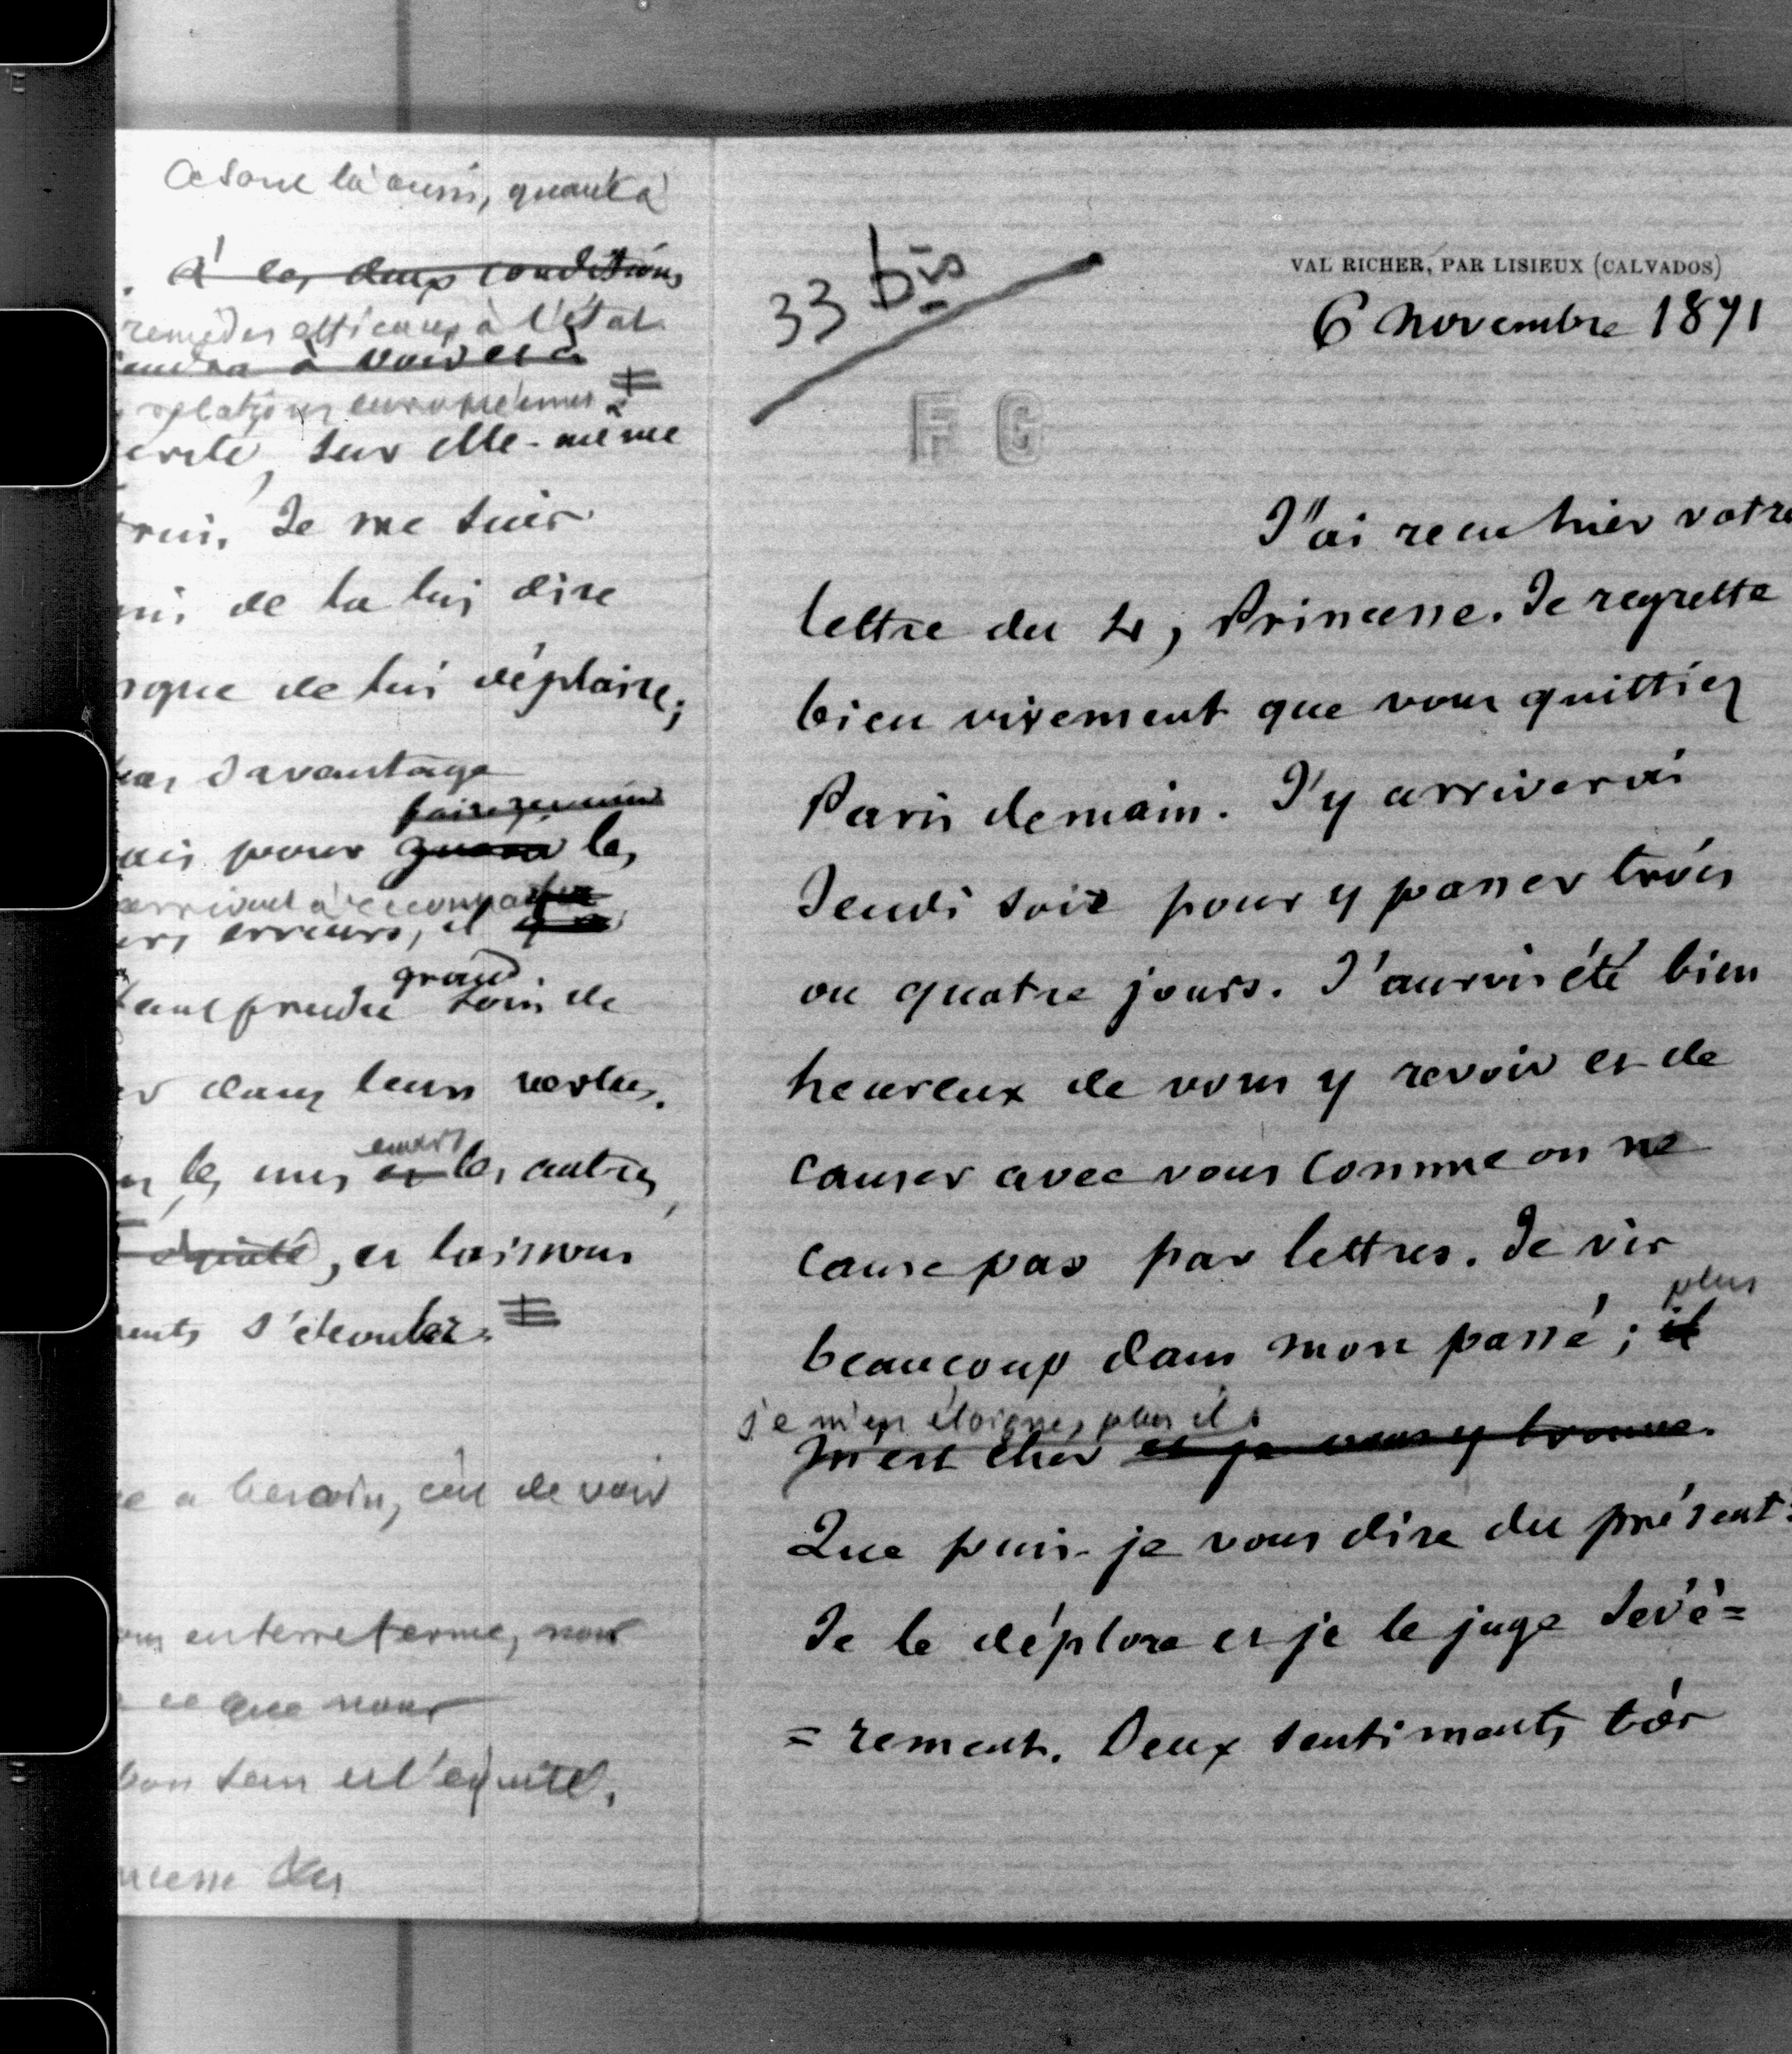 Ce sont là aussi, quant à
. A' les deux conditions
remèdes efficaces à l'état
à
relations européennes
sur elle-même
Je me suis
de la lui dire
de lui déplaire;
davantage
pour les
erreurs, il
grand
prendre soin de
dans leurs vertus.
envers
les uns et les autres,
équité, et laissons
s'écouler.
a besoin, c'est de voir
enterre ferme, nous
ce que nous
bon sens et l'équité.
33 bis
VAL RICHER, PAR LISIEUX (CALVADOS)
6 Novembre 1871
F G
J'ai reçu hier votre
lettre du 4, Princesse. Je regrette
bien vivement que vous quittiez
Paris demain. J'y arriverai
Jeudi soir pour y passer trois
ou quatre jours. J'aurois été bien
heureux de vous y revoir et de
causer avec vous comme on ne
cause pas par lettres. Je vis
plus
beaucoup dans mon passé; il
je m'en éloigne, plus il
m'est cher et je vous y trouve.
Que puis-je vous dire du présent?
Je le déplore et je le juge sévè=
=rement. Deux sentiments très